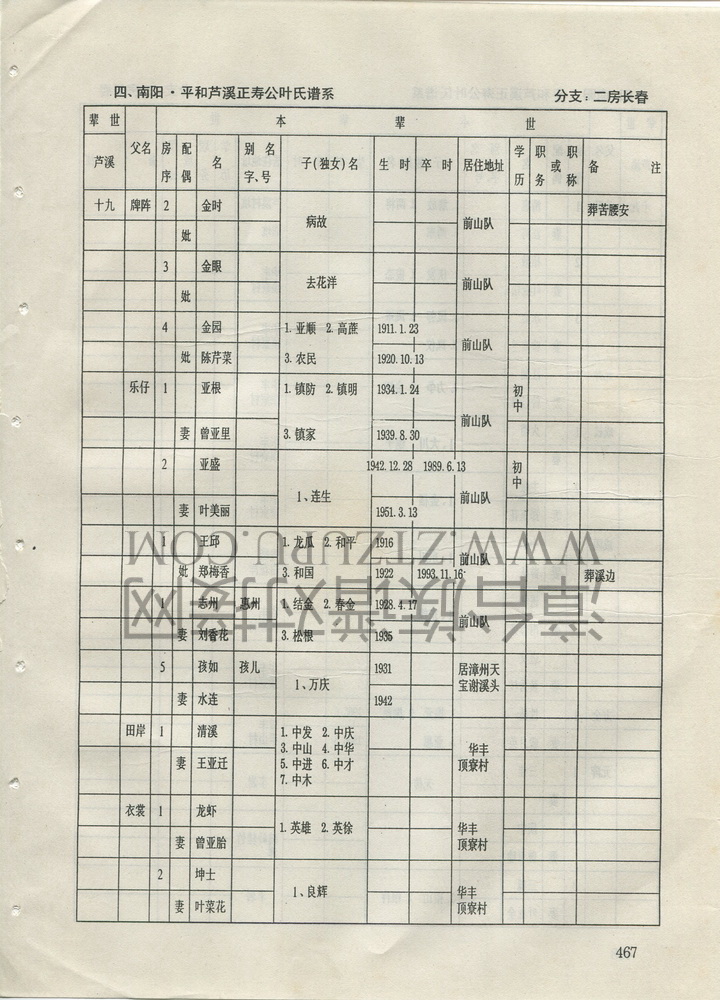 四、南阳·平和芦溪正寿公叶氏谱系 分支：二房长春
辈世 本辈世
芦溪 父名 房序 配偶 名 别名字、号 子(独女)名 生时 卒时 居住地址 学历 职务或职称 备注
十九 牌阵 2 金时 病故 前山队 葬苦腰安
妣
3 金眼 去花洋 前山队
妣
4 金园 1.亚顺 2.高蔗 1911.1.23 前山队
妣 陈芹菜 3.农民 1920.10.13
乐仔 1 亚根 1.镇防 2.镇明 1934.1.24 前山队 初中
妻 曾亚里 3.镇家 1939.8.30
2 亚盛 1、连生 1942.12.28 1989.6.13 前山队 初中
妻 叶美丽 1951.3.13
1 王邱 1.龙瓜 2.和平 1916 前山队
妣 郑梅香 3.和国 1922 1993.11.16 葬溪边
1 志州 惠州 1.结金 2.春金 1928.4.17 前山队
妻 刘香花 3.松根 1935
5 孩如 孩儿 1、万庆 1931 居漳州天宝谢溪头
妻 水连 1942
田岸 1 清溪 1.中发 2.中庆 华丰顶寮村
3.中山 4.中华
妻 王亚迁 5.中进 6.中才
7.中木
衣裳 1 龙虾 1.英雄 2.英徐 华丰顶寮村
妻 曾亚胎
2 坤士 1、良辉 华丰顶寮村
妻 叶菜花
467
WWW.ZTZUPU.COM
漳台族谱对接网